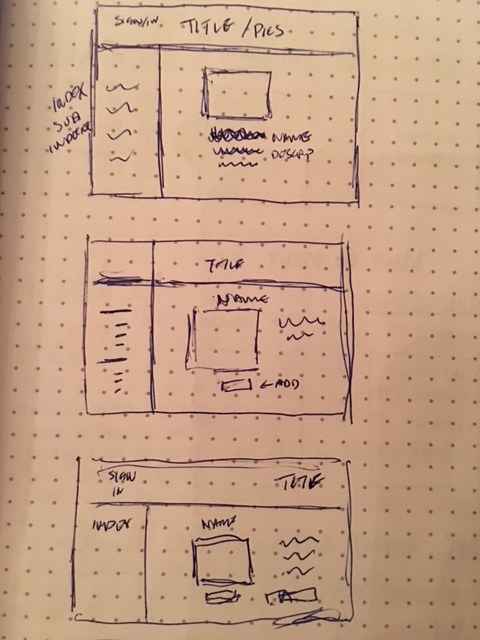 SIGN/IN TITLE / PICS
INDEX
SUB
INDEXES
NAME
DESCRIP
TITLE
NAME
←ADD
SIGN
IN
TITLE
INDEX
NAME